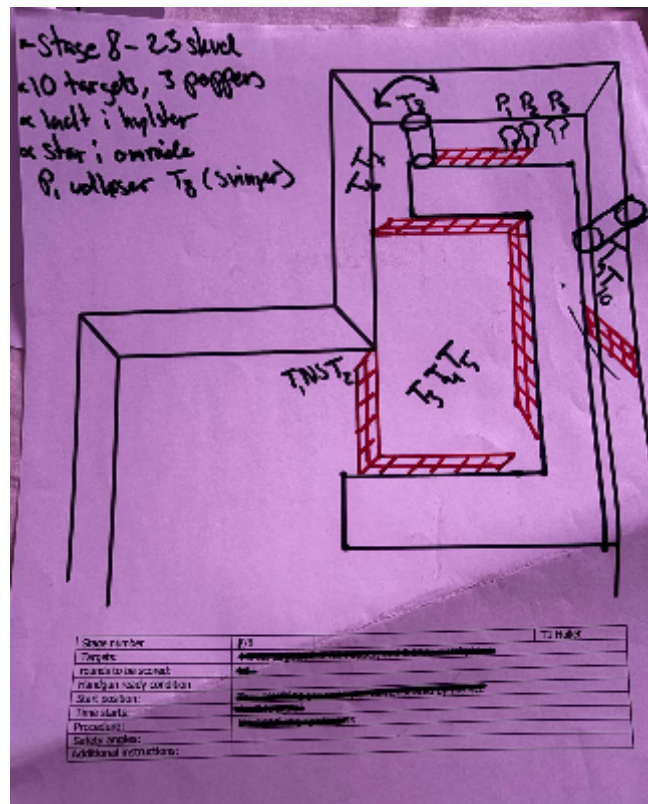 Stage 8 - 23 skudd
10 targets, 3 poppers
ladt i hylster
star i område
P1 utløser T8 (svinger)
T8
P1 P2 P3
T7
T6
T9
T10
T1 NS T2
T3 T4 T5
Stage number
Targets:
rounds to be scored:
Handgun ready condition
Start position:
Time starts:
Procedure:
Safety angles:
Additional instructions: